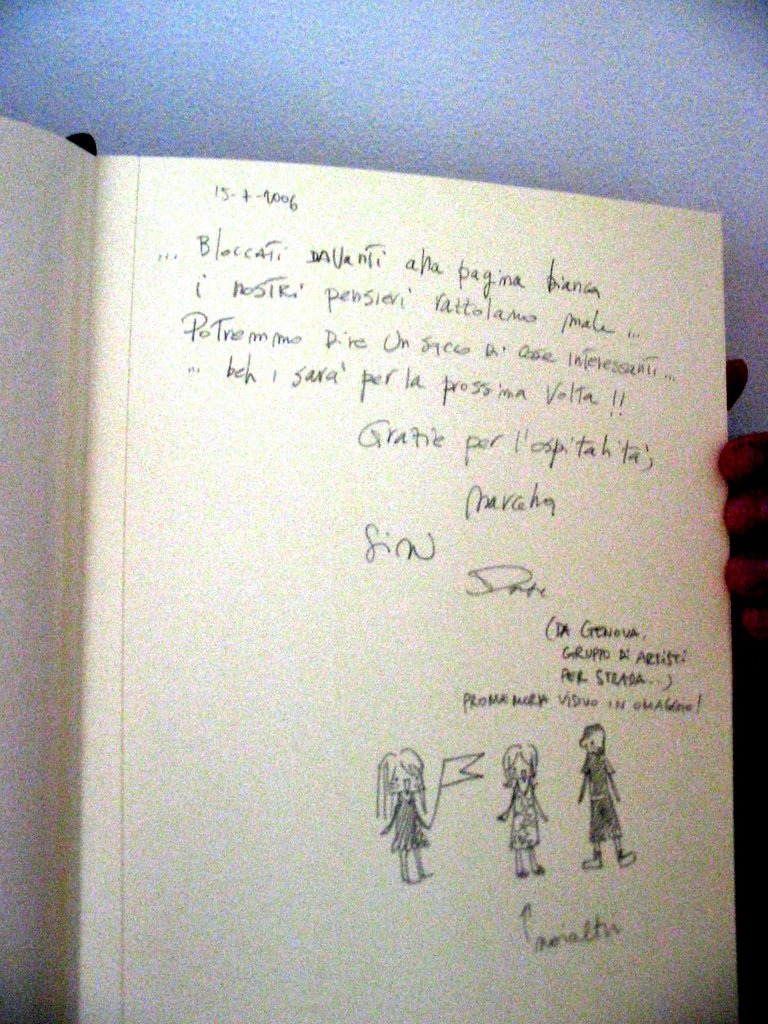 15-7-2006
... Bloccati davanti alla pagina bianca
i nostri pensieri rattolano male ...
Potremmo dire un sacco di cose interessanti ...
... beh, sarà per la prossima volta !!
Grazie per l'ospitalità,
Marcella
(DA GENOVA,
GRUPPO DI ARTISTI
PER STRADA...)
PROMEMORIA VISIVO IN OMAGGIO!
noialtri